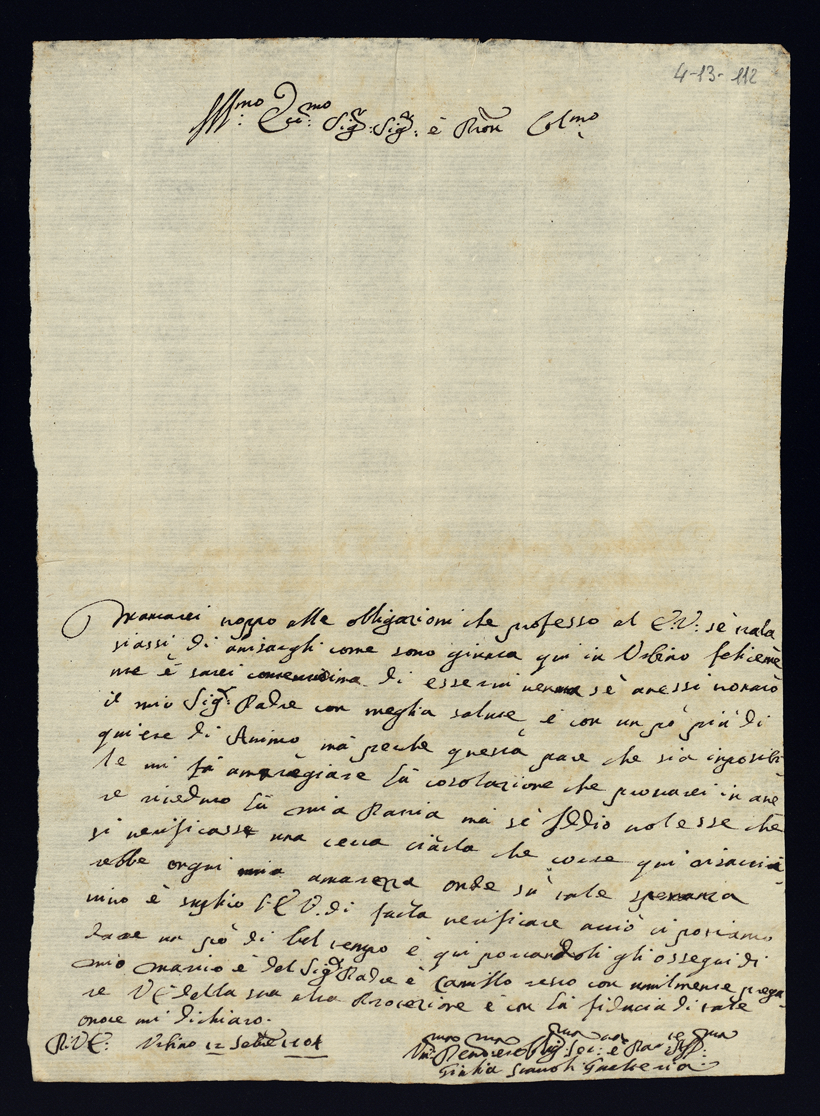 4-13-112
Ill:mo Ecc:mo Sig:r Sig:r è Pron Col:mo
Mancarei troppo alle obligazioni che professo al E.V: sè trala
siassi di avisargli come sono giunta qui in Urbino feliceme
nte è sarei contentissima di esservi venuta sè avessi trovato
il mio Sig:r Padre con meglia salute è con un pò più di
quiete di Animo mà perche questa pare che sia inposibi
le mi fà amaregiare là cosolazione che provarei in ave
re riveduto là mia Patria mà sè Iddio volesse che
si verificasse una certa ciarla che corre qui
rebbe ongni mia amarezza onde sù tale speranza
vivo è suplico l'E.V. di farla verificare acciò ci posiamo
dare un pò di bel tempo è qui portandoli gli ossequi di
mio marito è del Sig:r Padre è Camillo resto con umilmente prega
re VE della sua alta Protezione è con là fiducia di tale
onore mi dichiaro.
Di V.E: Urbino 12 Setbre
Giulia